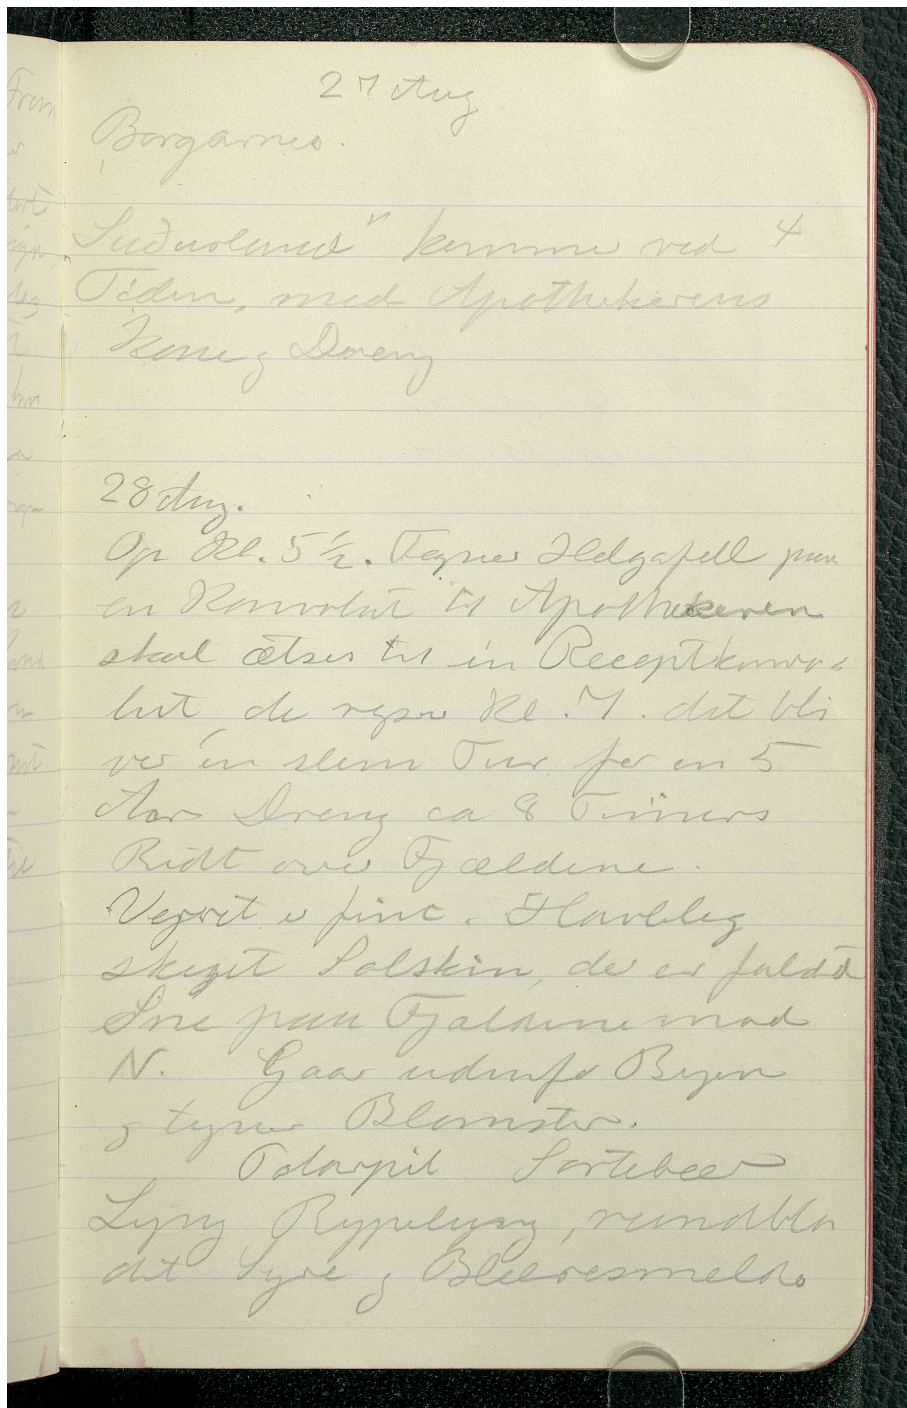 27 Aug
Borgarnes.
Suðurland" komme ved 4
Tiden, med Apothekerens
Kone og Dreng
28 Aug.
Op Kl. 5 1/2. Tegner Helgafell paa
en Konvolut til Apothekeren
skal ætses til en Receptkonvo-
lut de rejser Kl. 7. det bli
ver en slem Tur for en 5
Aars Dreng ca 8 Timers
Ridt over Fjældene.
Vejret er fint. Havblik
skyet Solskin, der er faldt
Sne paa Fjældene mod
N. Gaar udenfor Byen
og tegner Blomster.
Polarpil Sortebær
Lyng Rypelyng, rundbla
det Syre og Blæresmelde